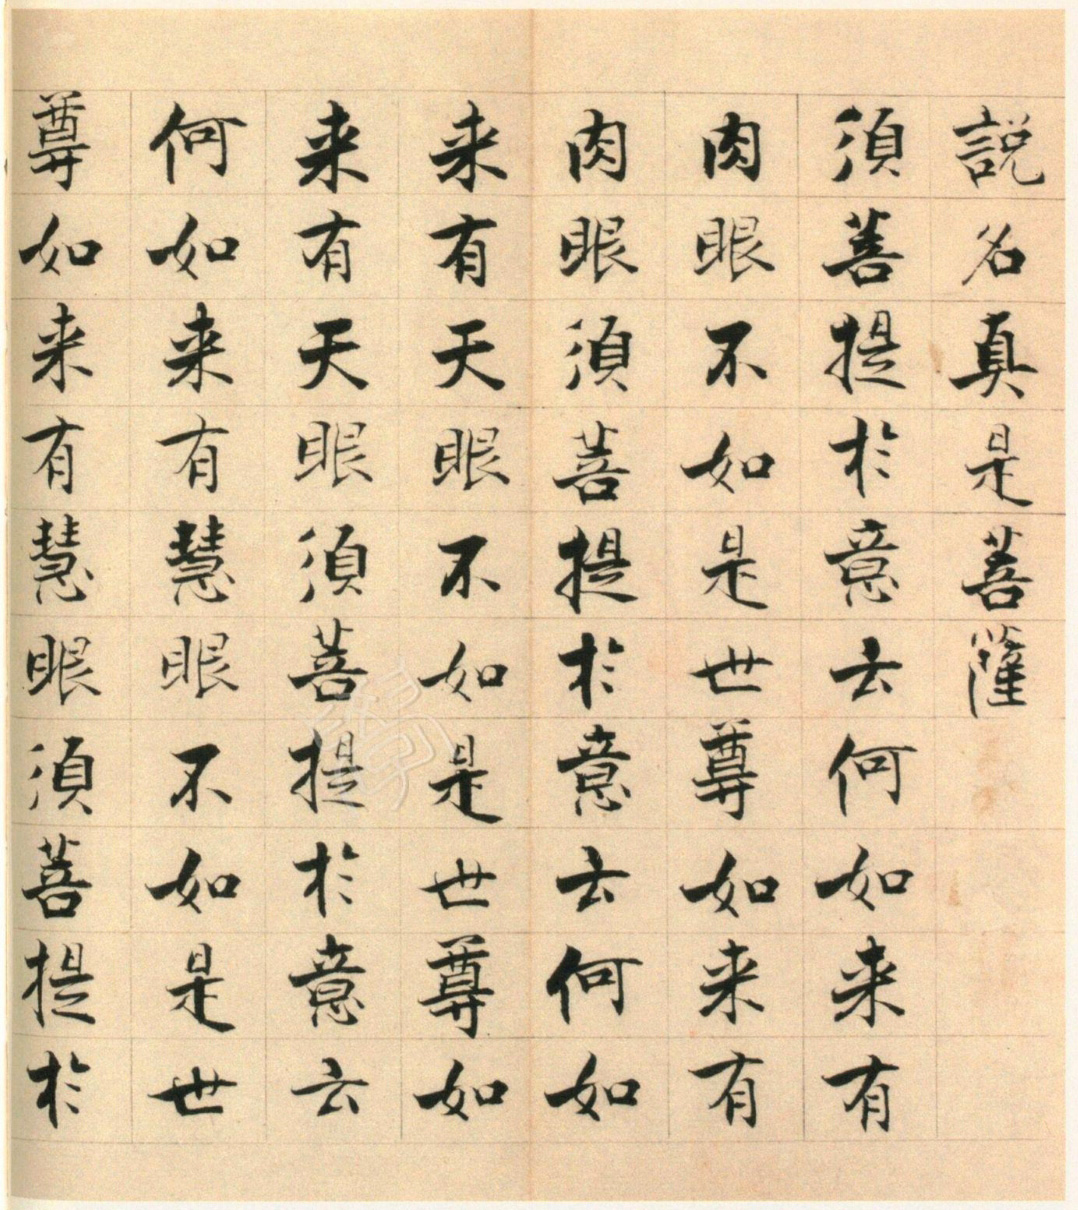 説名真是菩薩
須菩提於意云何如来有
肉眼不如是世尊如来有
肉眼須菩提於意云何如
来有天眼不如是世尊如
来有天眼須菩提於意云
何如来有慧眼不如是世
尊如来有慧眼須菩提於